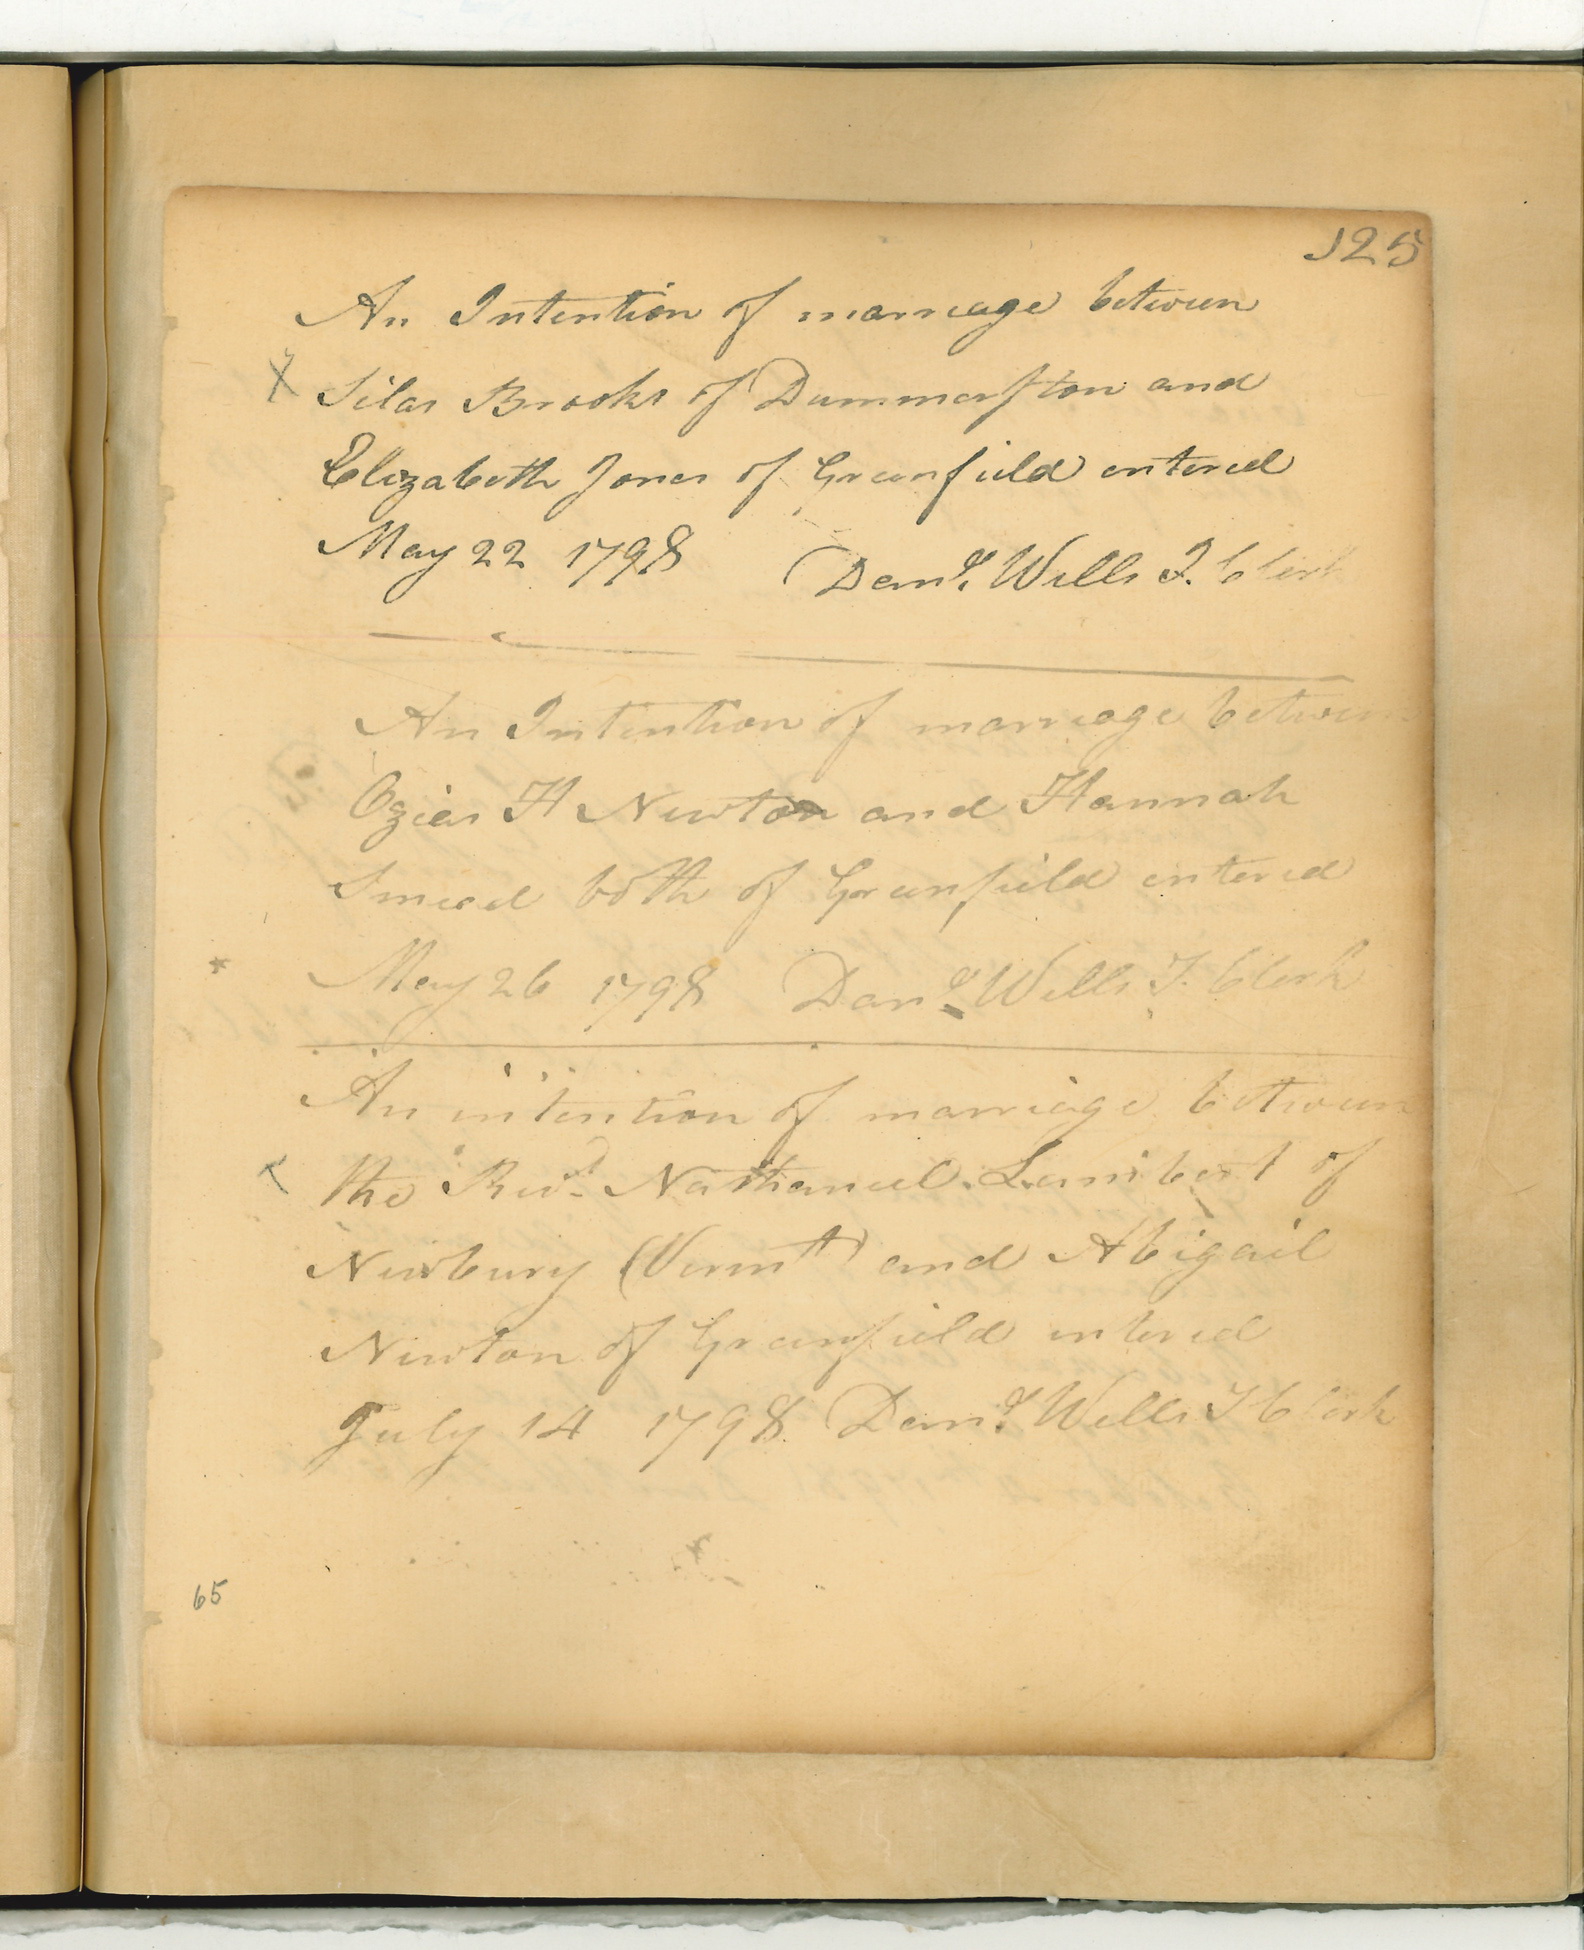 125
An Intention of marriage between
X Silas Brooks of Dummerston and
Elizabeth Jones of Greenfield entered
May 22 1798 Danˡ. Wells T. Clerk
An Intention of marriage between
Ozias H Newton and Hannah
Smead both of Greenfield entered
May 26 1798 Danˡ. Wells T. Clerk
An intention of marriage between
the Revᵈ. Nathaniel Lambert of
Newbury (Vermᵗ) and Abigail
Newton of Greenfield entered
July 14 1798 Danˡ. Wells T Clerk
65